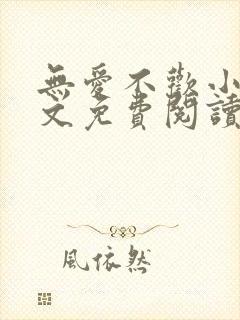 無愛不歡小
文免費閱讀
風依然